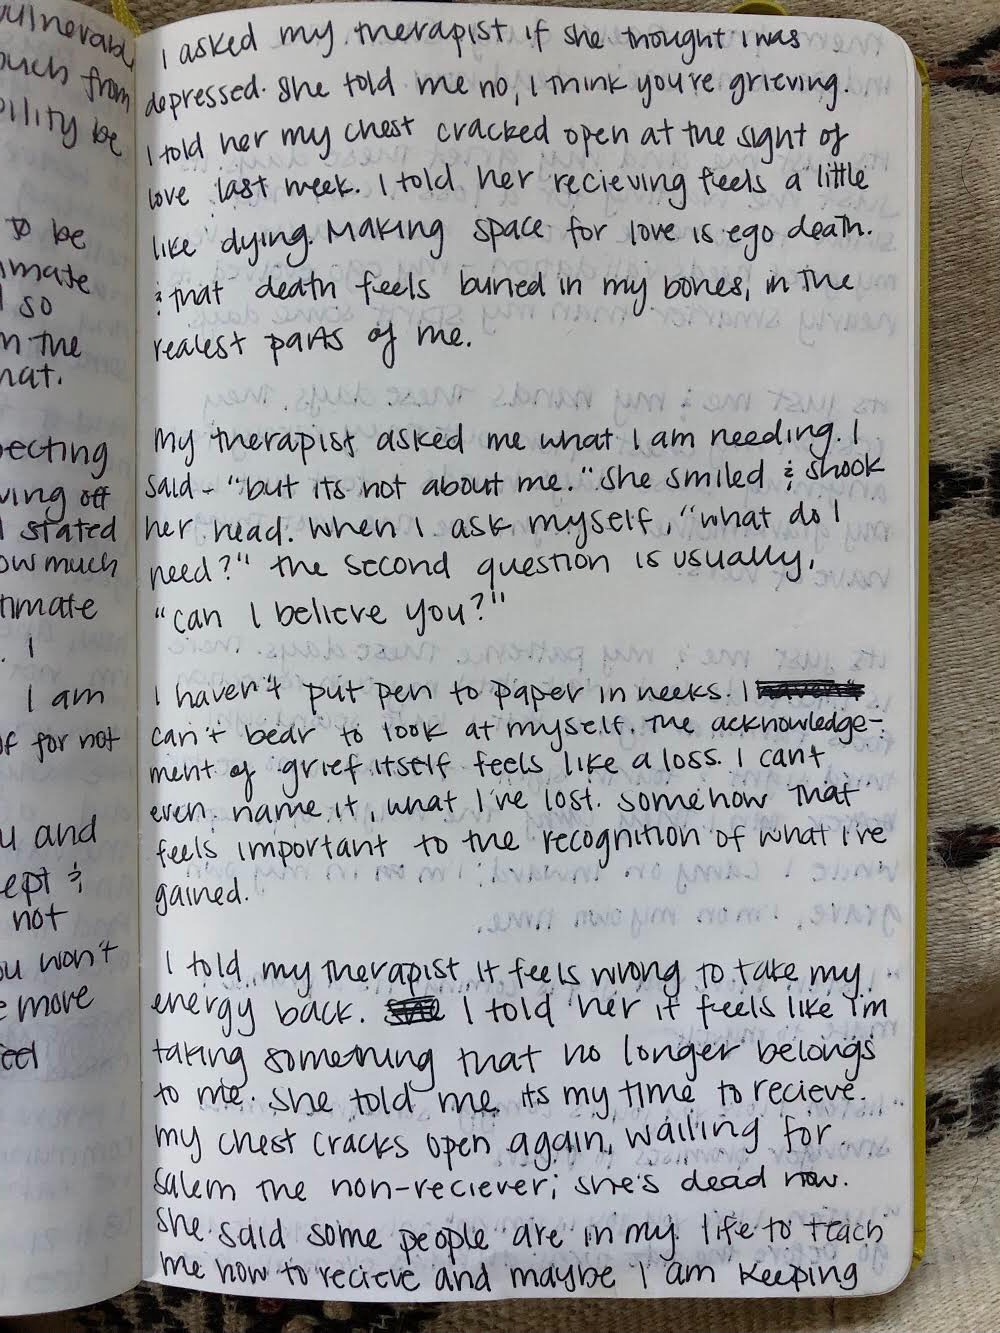 vulnerabl
ouch from
bility be
to be
imate
l so
n the
hat.
pecting
ving off
l stated
ow much
timate
. I
I am
of for not
u and
ept &
not
ou won't
e more
eel
I asked my therapist if she thought I was
depressed. She told me no, I think you're grieving.
I told her my chest cracked open at the sight of
love last week. I told her recieving feels a little
like dying. Making space for love is ego death.
& that death feels buried in my bones, in the
realest parts of me.
My therapist asked me what I am needing. I
said - "but its not about me." She smiled & shook
her head. When I ask myself, "what do I
need?" the second question is usually,
"can I believe you?"
I haven't put pen to paper in weeks. I
can't bear to look at myself. The acknowledge-
ment of grief itself feels like a loss. I can't
even name it, what I've lost. Somehow that
feels important to the recognition of what I've
gained.
I told my therapist it feels wrong to take my
energy back. I told her it feels like I'm
taking something that no longer belongs
to me. She told me its my time to recieve.
My chest cracks open again, wailing for
Salem the non-reciever; she's dead now.
She said some people are in my life to teach
me how to recieve and maybe I am keeping